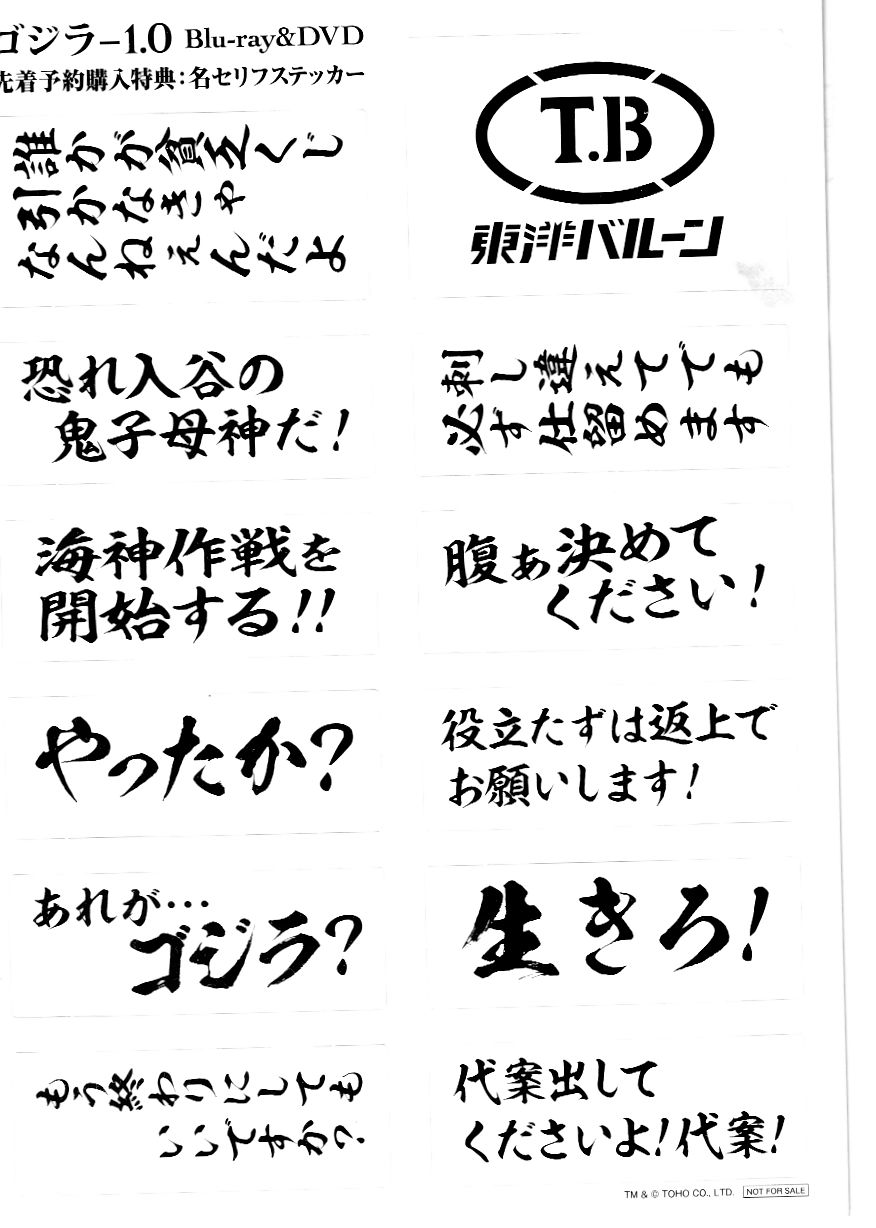 ゴジラ−1.0 Blu-ray&DVD
先着予約購入特典：名セリフステッカー
誰かが貧乏くじ
引かなきゃ
なんねぇんだよ
T.B
東洋バルーン
恐れ入谷の
鬼子母神だ！
刺し違えてでも
必ず仕留めます
海神作戦を
開始する!!
腹ぁ決めて
ください！
やったか？
役立たずは返上で
お願いします！
あれが…
ゴジラ？
生きろ！
もう終わりにしても
いいですか？
代案出して
くださいよ！代案！
TM & © TOHO CO., LTD. NOT FOR SALE